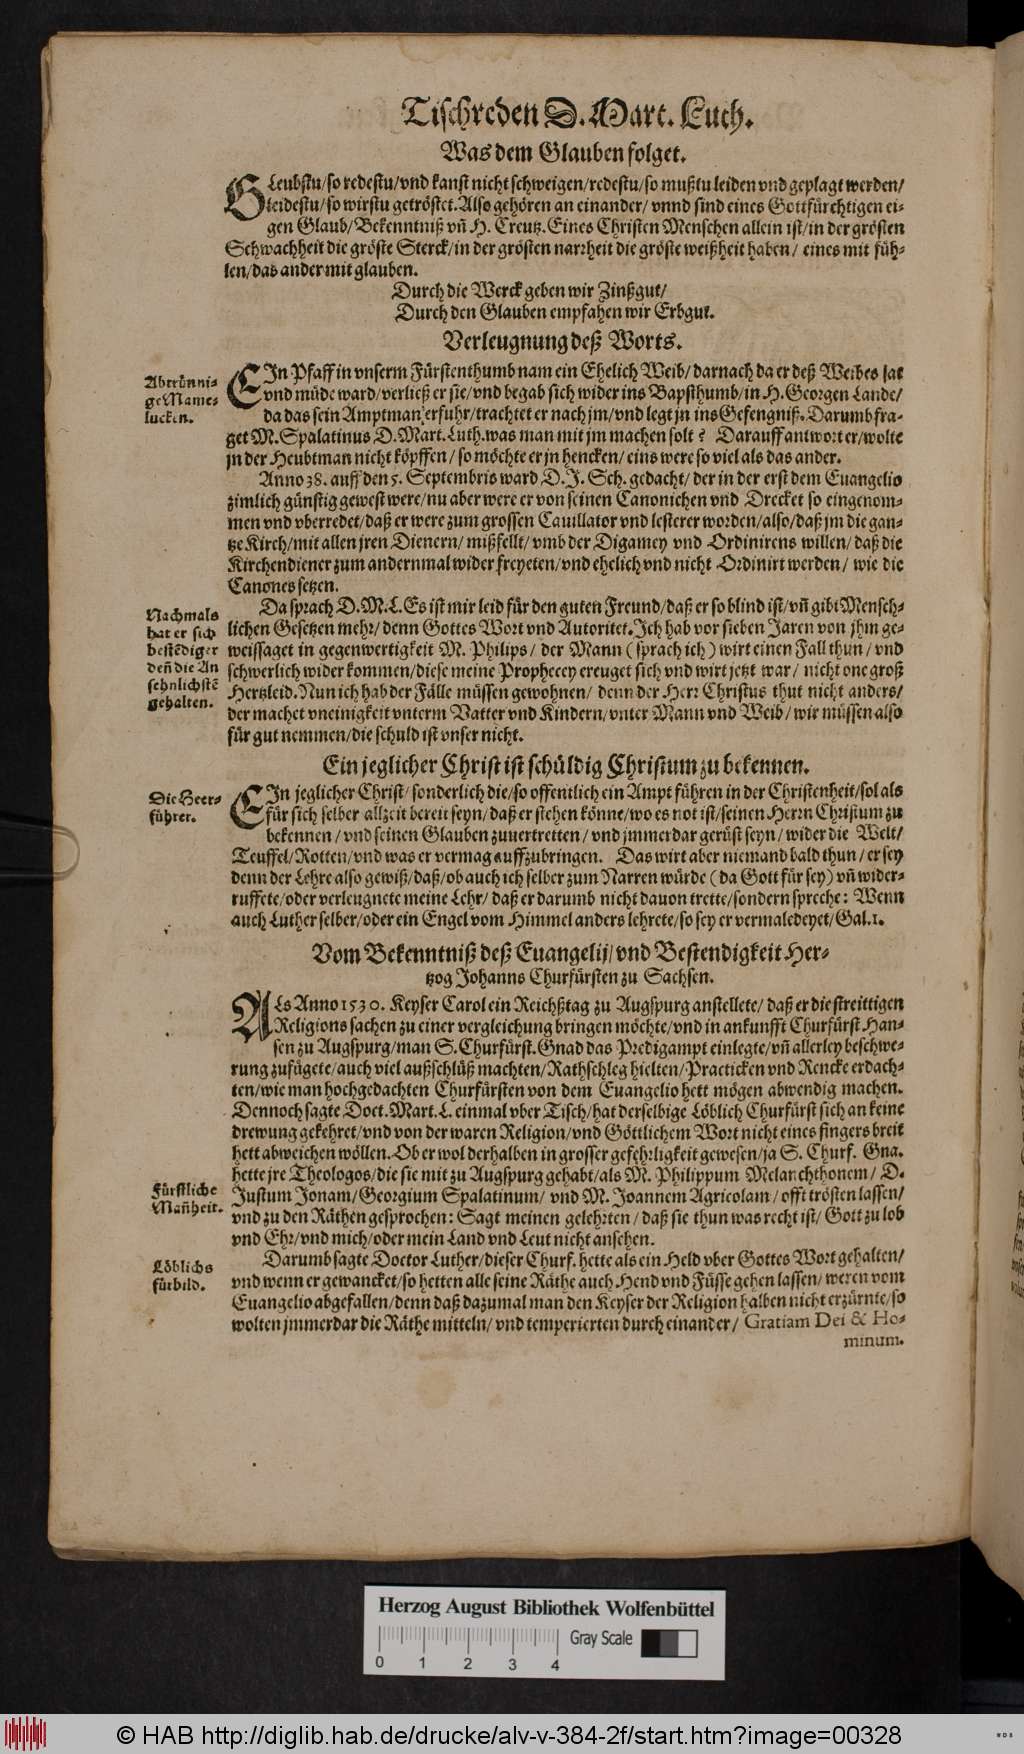 Tischreden D. Mart. Luth.
Was dem Glauben folget.
GLeubstu/so redestu/vnd kanst nicht schweigen/redestu/so mußtu leiden vnd geplagt werden/
leidestu/so wirstu getröstet. Also gehören an einander/ vnnd sind eines Gottfürchtigen ei-
gen Glaub/Bekenntniß vn̄ H. Creutz. Eines Christen Menschen allein ist/in der grösten
Schwachheit die gröste Sterck/in der grösten narrheit die gröste weißheit haben/ eines mit füh-
len/das ander mit glauben.
Durch die Werck geben wir Zinßgut/
Durch den Glauben empfahen wir Erbgut.
Verleugnung deß Worts.
Abtrünni-
ge Mame-
lucken.
EIn Pfaff in vnserm Fürstenthumb nam ein Ehelich Weib/ darnach da er deß Weibes sat
vnd müde ward/verließ er sie/vnd begab sich wider ins Bapsthumb/in H. Georgen Lande/
da das sein Amptman erfuhr/trachtet er nach jm/vnd legt jn ins Gefengniß. Darumb fra-
get M. Spalatinus D. Mart. Luth. was man mit jm machen solt? Darauff antwort er/wolte
jn der Heubtman nicht köpffen/ so möchte er jn hencken/ eins were so viel als das ander.
Anno 38. auff den 5. Septembris ward D. J. Sch. gedacht/ der in der erst dem Euangelio
zimlich günstig gewest were/nu aber were er von seinen Canonichen vnd Drecket so eingenom-
men vnd vberredet/daß er were zum grossen Cauillator vnd lesterer worden/also/daß jm die gan-
tze Kirch/mit allen jren Dienern/ mißfellt/ vmb der Digamey vnd Ordinirens willen/ daß die
Kirchendiener zum andernmal wider freyeten/vnd ehelich vnd nicht Ordinirt werden/ wie die
Canones setzen.
Nachmals
hat er sich
bestēdiger
den̄ die An
sehnlichstē
gehalten.
Da sprach D. M. L. Es ist mir leid für den guten Freund/daß er so blind ist/vn̄ gibt Mensch-
lichen Gesetzen mehr/ denn Gottes Wort vnd Autoritet. Ich hab vor sieben Jaren von jhm ge-
weissaget in gegenwertigkeit M. Philips/ der Mann (sprach ich) wirt einen Fall thun/ vnd
schwerlich wider kommen/diese meine Prophecey ereuget sich vnd wirt jetzt war/ nicht one groß
Hertzleid. Nun ich hab der Fälle müssen gewohnen/ denn der Herr Christus thut nicht anders/
der machet vneinigkeit vnterm Vatter vnd Kindern/vnter Mann vnd Weib/ wir müssen also
für gut nemmen/die schuld ist vnser nicht.
Ein jeglicher Christ ist schüldig Christum zu bekennen.
Die Heer-
führer.
EIn jeglicher Christ/ sonderlich die/so offentlich ein Ampt führen in der Christenheit/sol als
für sich selber allzeit bereit seyn/daß er stehen könne/wo es not ist/seinen Herrn Christum zu
bekennen/ vnd seinen Glauben zuuertretten/ vnd jmmerdar gerüst seyn/ wider die Welt/
Teuffel/Rotten/vnd was er vermag auffzubringen. Das wirt aber niemand bald thun/ er sey
denn der Lehre also gewiß/daß/ob auch ich selber zum Narren würde (da Gott für sey) vn̄ wider-
ruffete/oder verleugnete meine Lehr/ daß er darumb nicht dauon trette/sondern spreche: Wenn
auch Luther selber/oder ein Engel vom Himmel anders lehrete/so sey er vermaledeyet/Gal.1.
Vom Bekenntniß deß Euangelij/ vnd Bestendigkeit Her-
tzog Johanns Churfürsten zu Sachsen.
ALs Anno 1530. Keyser Carol ein Reichßtag zu Augspurg anstellete/ daß er die streittigen
Religions sachen zu einer vergleichung bringen möchte/vnd in ankunfft Churfürst. Han-
sen zu Augspurg/man S. Churfürst. Gnad das Predigampt einlegte/vn̄ allerley beschwe-
rung zufügete/auch viel außschüß machten/Rathschleg hielten/Practicken vnd Rencke erdach-
ten/wie man hochgedachten Churfürsten von dem Euangelio hett mögen abwendig machen.
Dennoch sagte Doct. Mart. L. einmal vber Tisch/hat derselbige Löblich Churfürst sich an keine
drewung gekehret/vnd von der waren Religion/vnd Göttlichem Wort nicht eines fingers breit
hett abweichen wöllen. Ob er wol derhalben in grosser gefehrligkeit gewesen/ja S. Churf. Gna.
hette jre Theologos/die sie mit zu Augspurg gehabt/als M. Philippum Melanchthonem/ D.
Fürstliche
Man̄heit.
Justum Jonam/Georgium Spalatinum/ vnd M. Joannem Agricolam/ offt trösten lassen/
vnd zu den Räthen gesprochen: Sagt meinen gelehrten/ daß sie thun was recht ist/ Gott zu lob
vnd Ehr/vnd mich/oder mein Land vnd Leut nicht ansehen.
Löblichs
fürbild.
Darumb sagte Doctor Luther/dieser Churf. hette als ein Held vber Gottes Wort gehalten/
vnd wenn er gewancket/so hetten alle seine Räthe auch Hend vnd Füsse gehen lassen/ weren vom
Euangelio abgefallen/denn daß dazumal man den Keyser der Religion halben nicht erzürnte/so
wolten jmmerdar die Räthe mitteln/ vnd temperierten durch einander/ Gratiam Dei & Ho-
minum.
Herzog August Bibliothek Wolfenbüttel
Gray Scale
0 1 2 3 4
© HAB http://diglib.hab.de/drucke/alv-v-384-2f/start.htm?image=00328